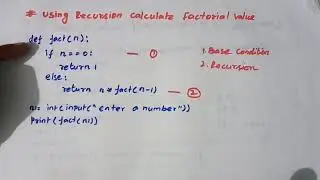 # Using Recursion calculate Factorial value
def fact(n):
if n==0: — ① 1. Base Condition
return 1 2. Recursion
else:
return n*fact(n-1) — ②
n1= int(input("enter a number"))
Print(fact(n1))